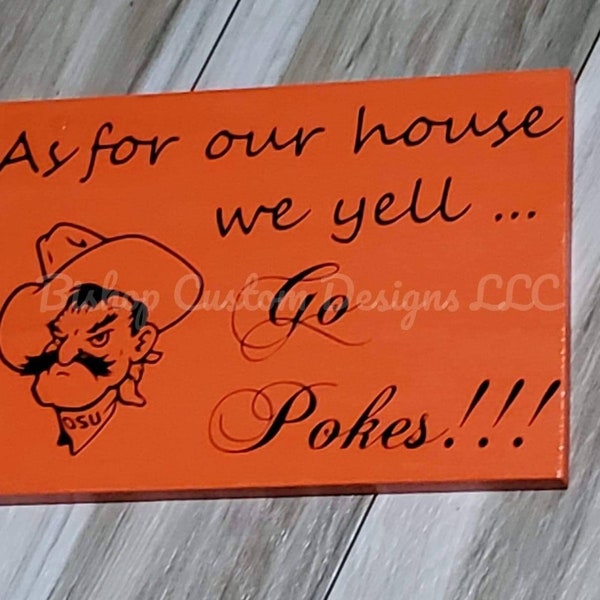 As for our house
we yell ...
Bishop Custom Designs LLC
Go
Pokes!!!
OSU